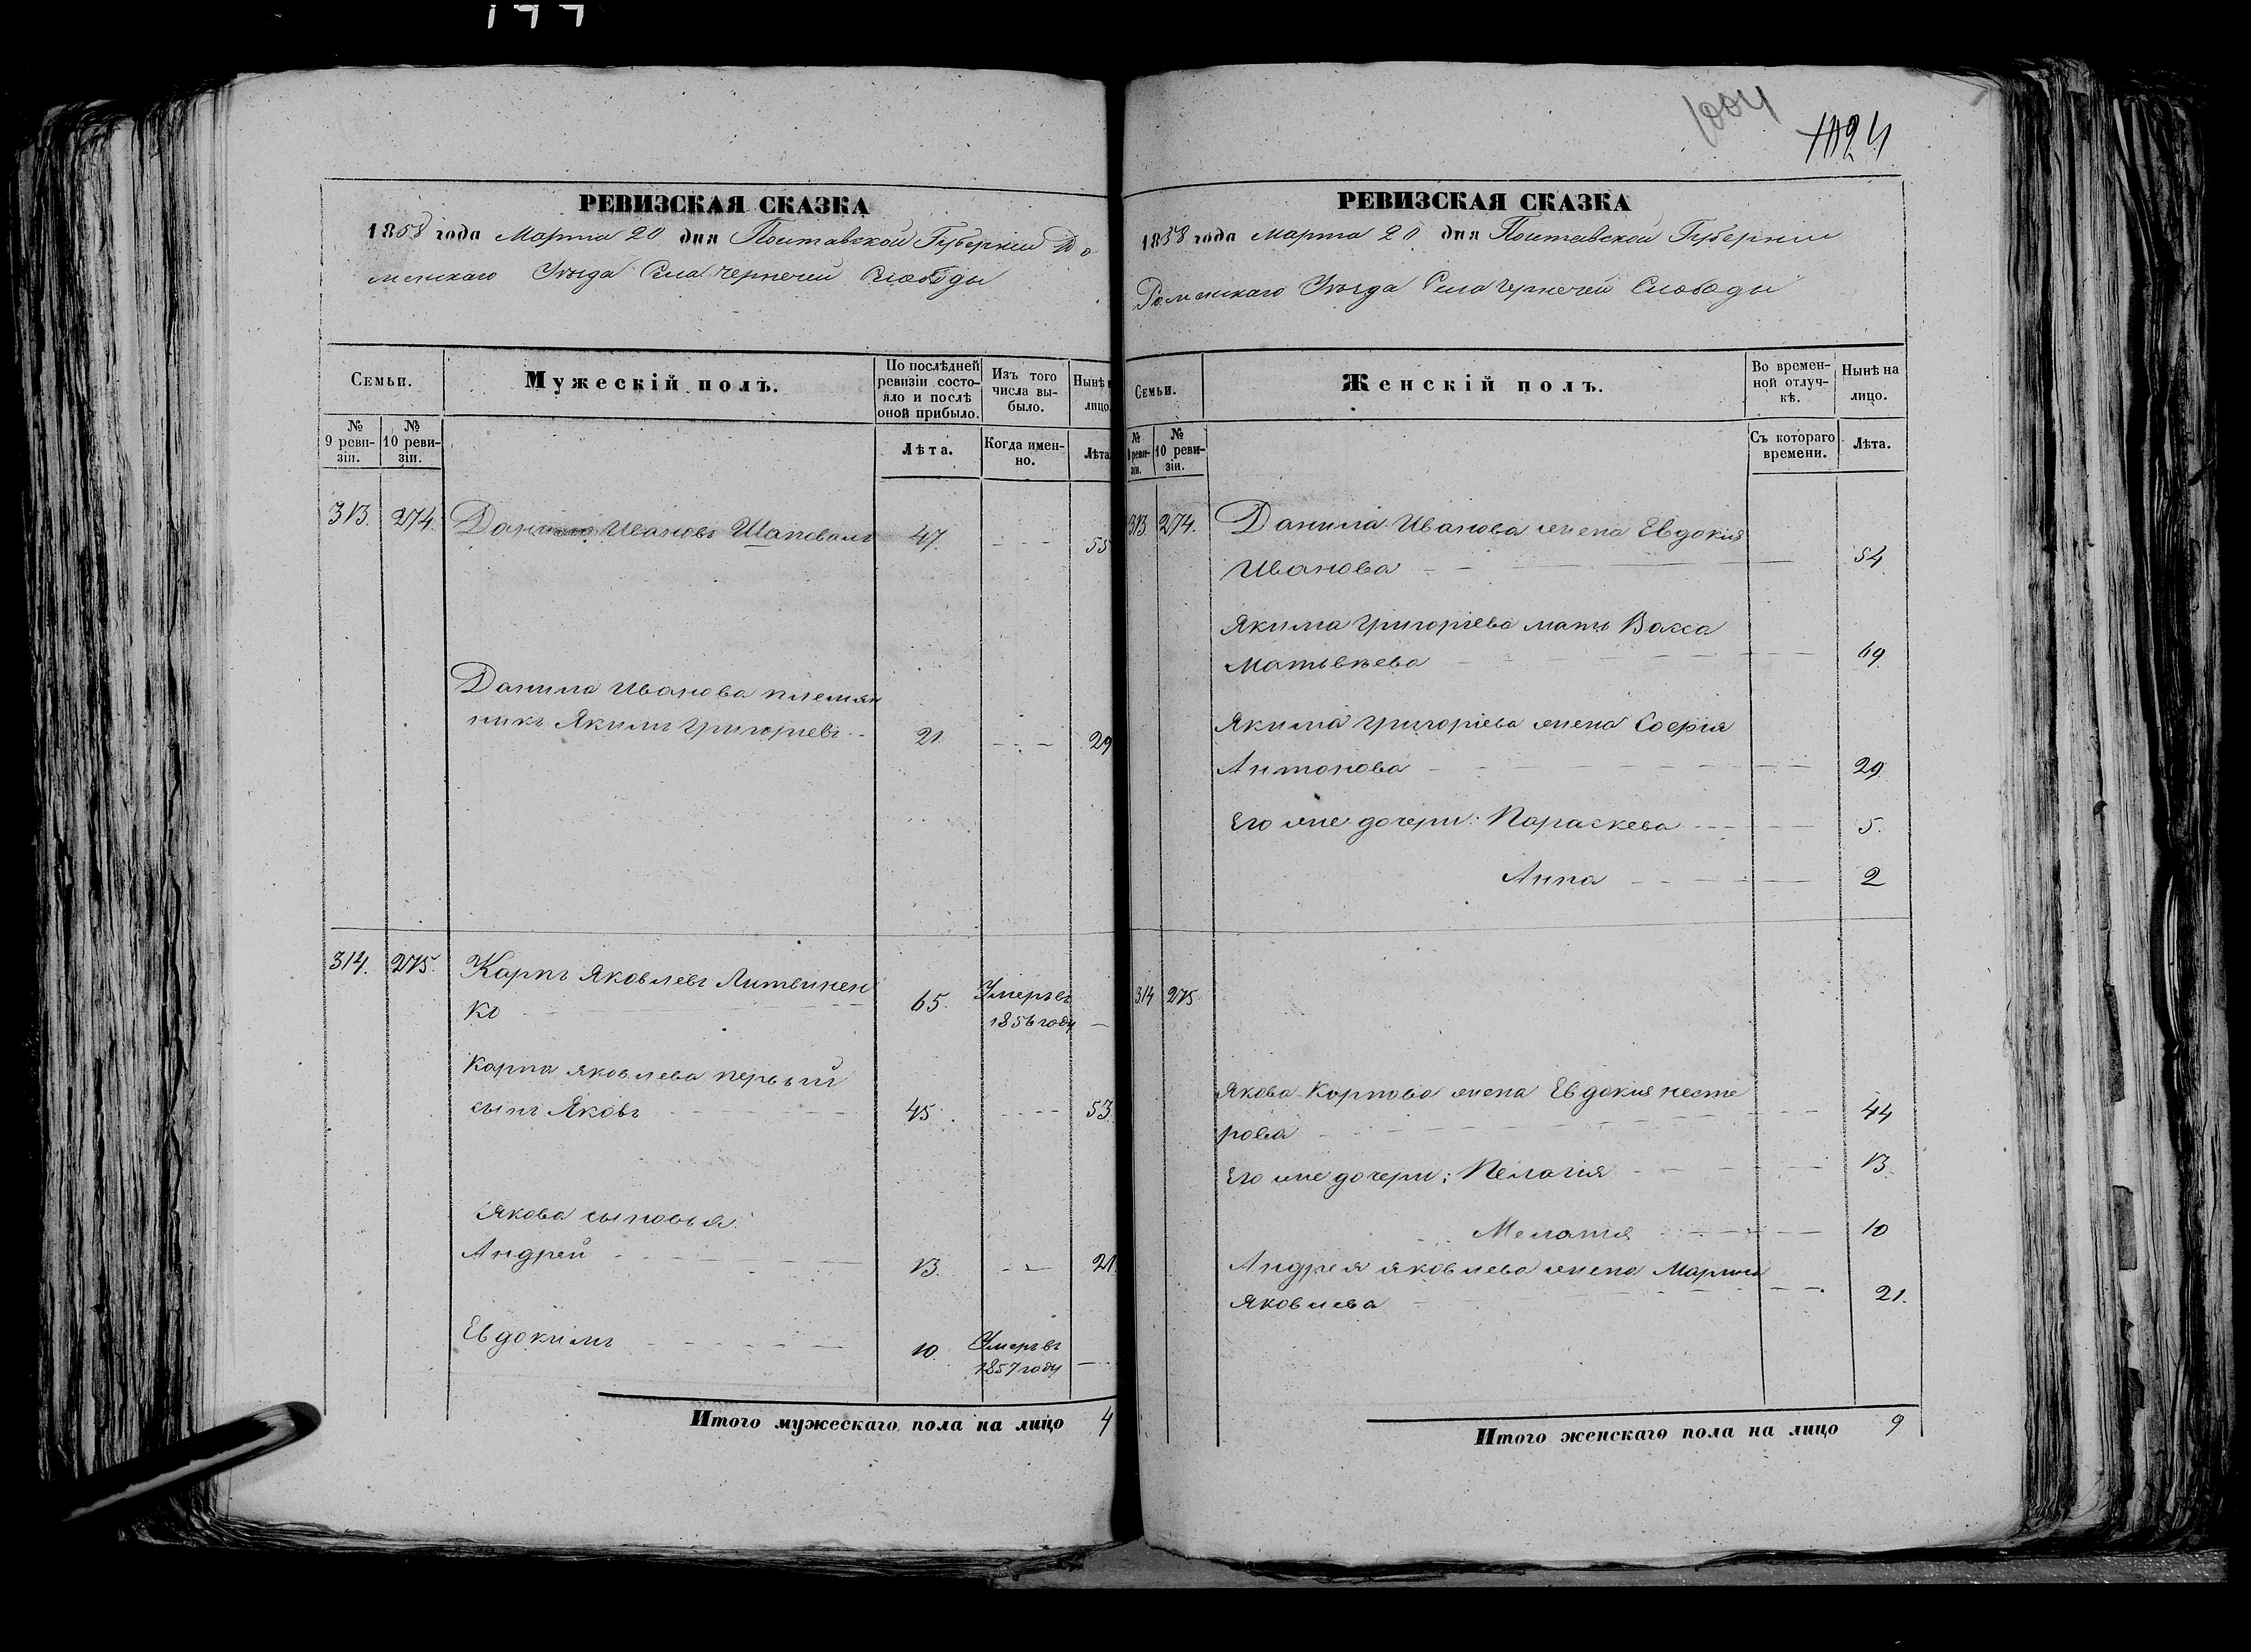 1004
1124
РЕВИЗСКАЯ СКАЗКА
1858 года Марта 20 дня Полтавской Губерніи Ро
менскаго Уѣзда Села Чернечей Слободы
Семьи.
Мужескій полъ.
По послѣдней ревизіи состояло и послѣ оной прибыло.
Изъ того числа выбыло.
Нынѣ н
лицо
№ 9 ревизіи.
№ 10 ревизіи.
Лѣта.
Когда именно.
Лѣта
313. 274. Данило Ивановъ Шаповалъ 47. - - - 55
Данила Иванова племян
никъ Якимъ Григорьевъ - - 21. - - - 29
314. 275. Карпъ Яковлевъ Литвинен
ко 65. Умеръ въ
1856 году -
Карпа Яковлева первый
сынъ Яковъ 45. - - - 53.
Якова сыновья:
Андрей 13. - - 21.
Евдокимъ 10. Умеръ въ
1857 году -
Итого мужескаго пола на лицо 4
РЕВИЗСКАЯ СКАЗКА
1858 года Марта 20 дня Полтавской Губерніи
Роменскаго Уѣзда Села Чернечей Слободы
Семьи.
Женскій полъ.
Во временной отлучкѣ.
Нынѣ на лицо.
№ 9 ревизіи.
№ 10 ревизіи.
Съ котораго времени.
Лѣта.
313. 274. Данила Иванова жена Евдокия
Иванова 54
Якима Григорьева мать Васса
Матвѣева 69.
Якима Григорьева жена Софія
Антонова 29
Его же дочери: Параскева 5.
Анна 2
314 275
Якова Карпова жена Евдокия Несте
рова 44
Его же дочери: Пелагия 13.
Мелания 10
Андрея Яковлева жена Марина
Яковлева 21.
Итого женскаго пола на лицо 9